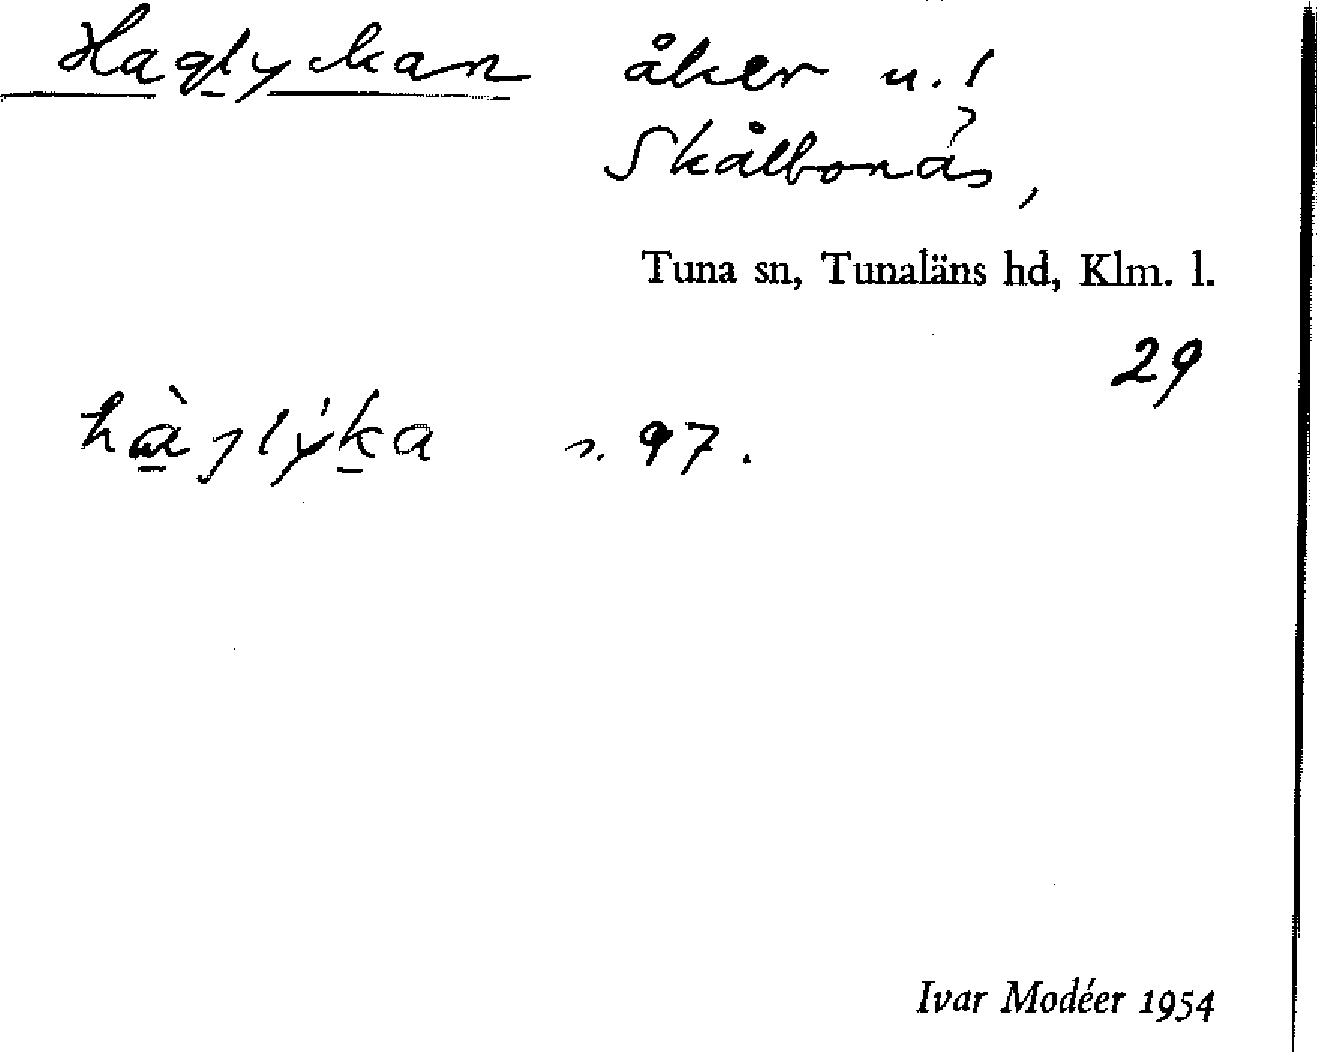 Haglyckan åker u. !
Skålbonäs,
Tuna sn, Tunaläns hd, Klm. l.
29
s. 97.
Ivar Modéer 1954